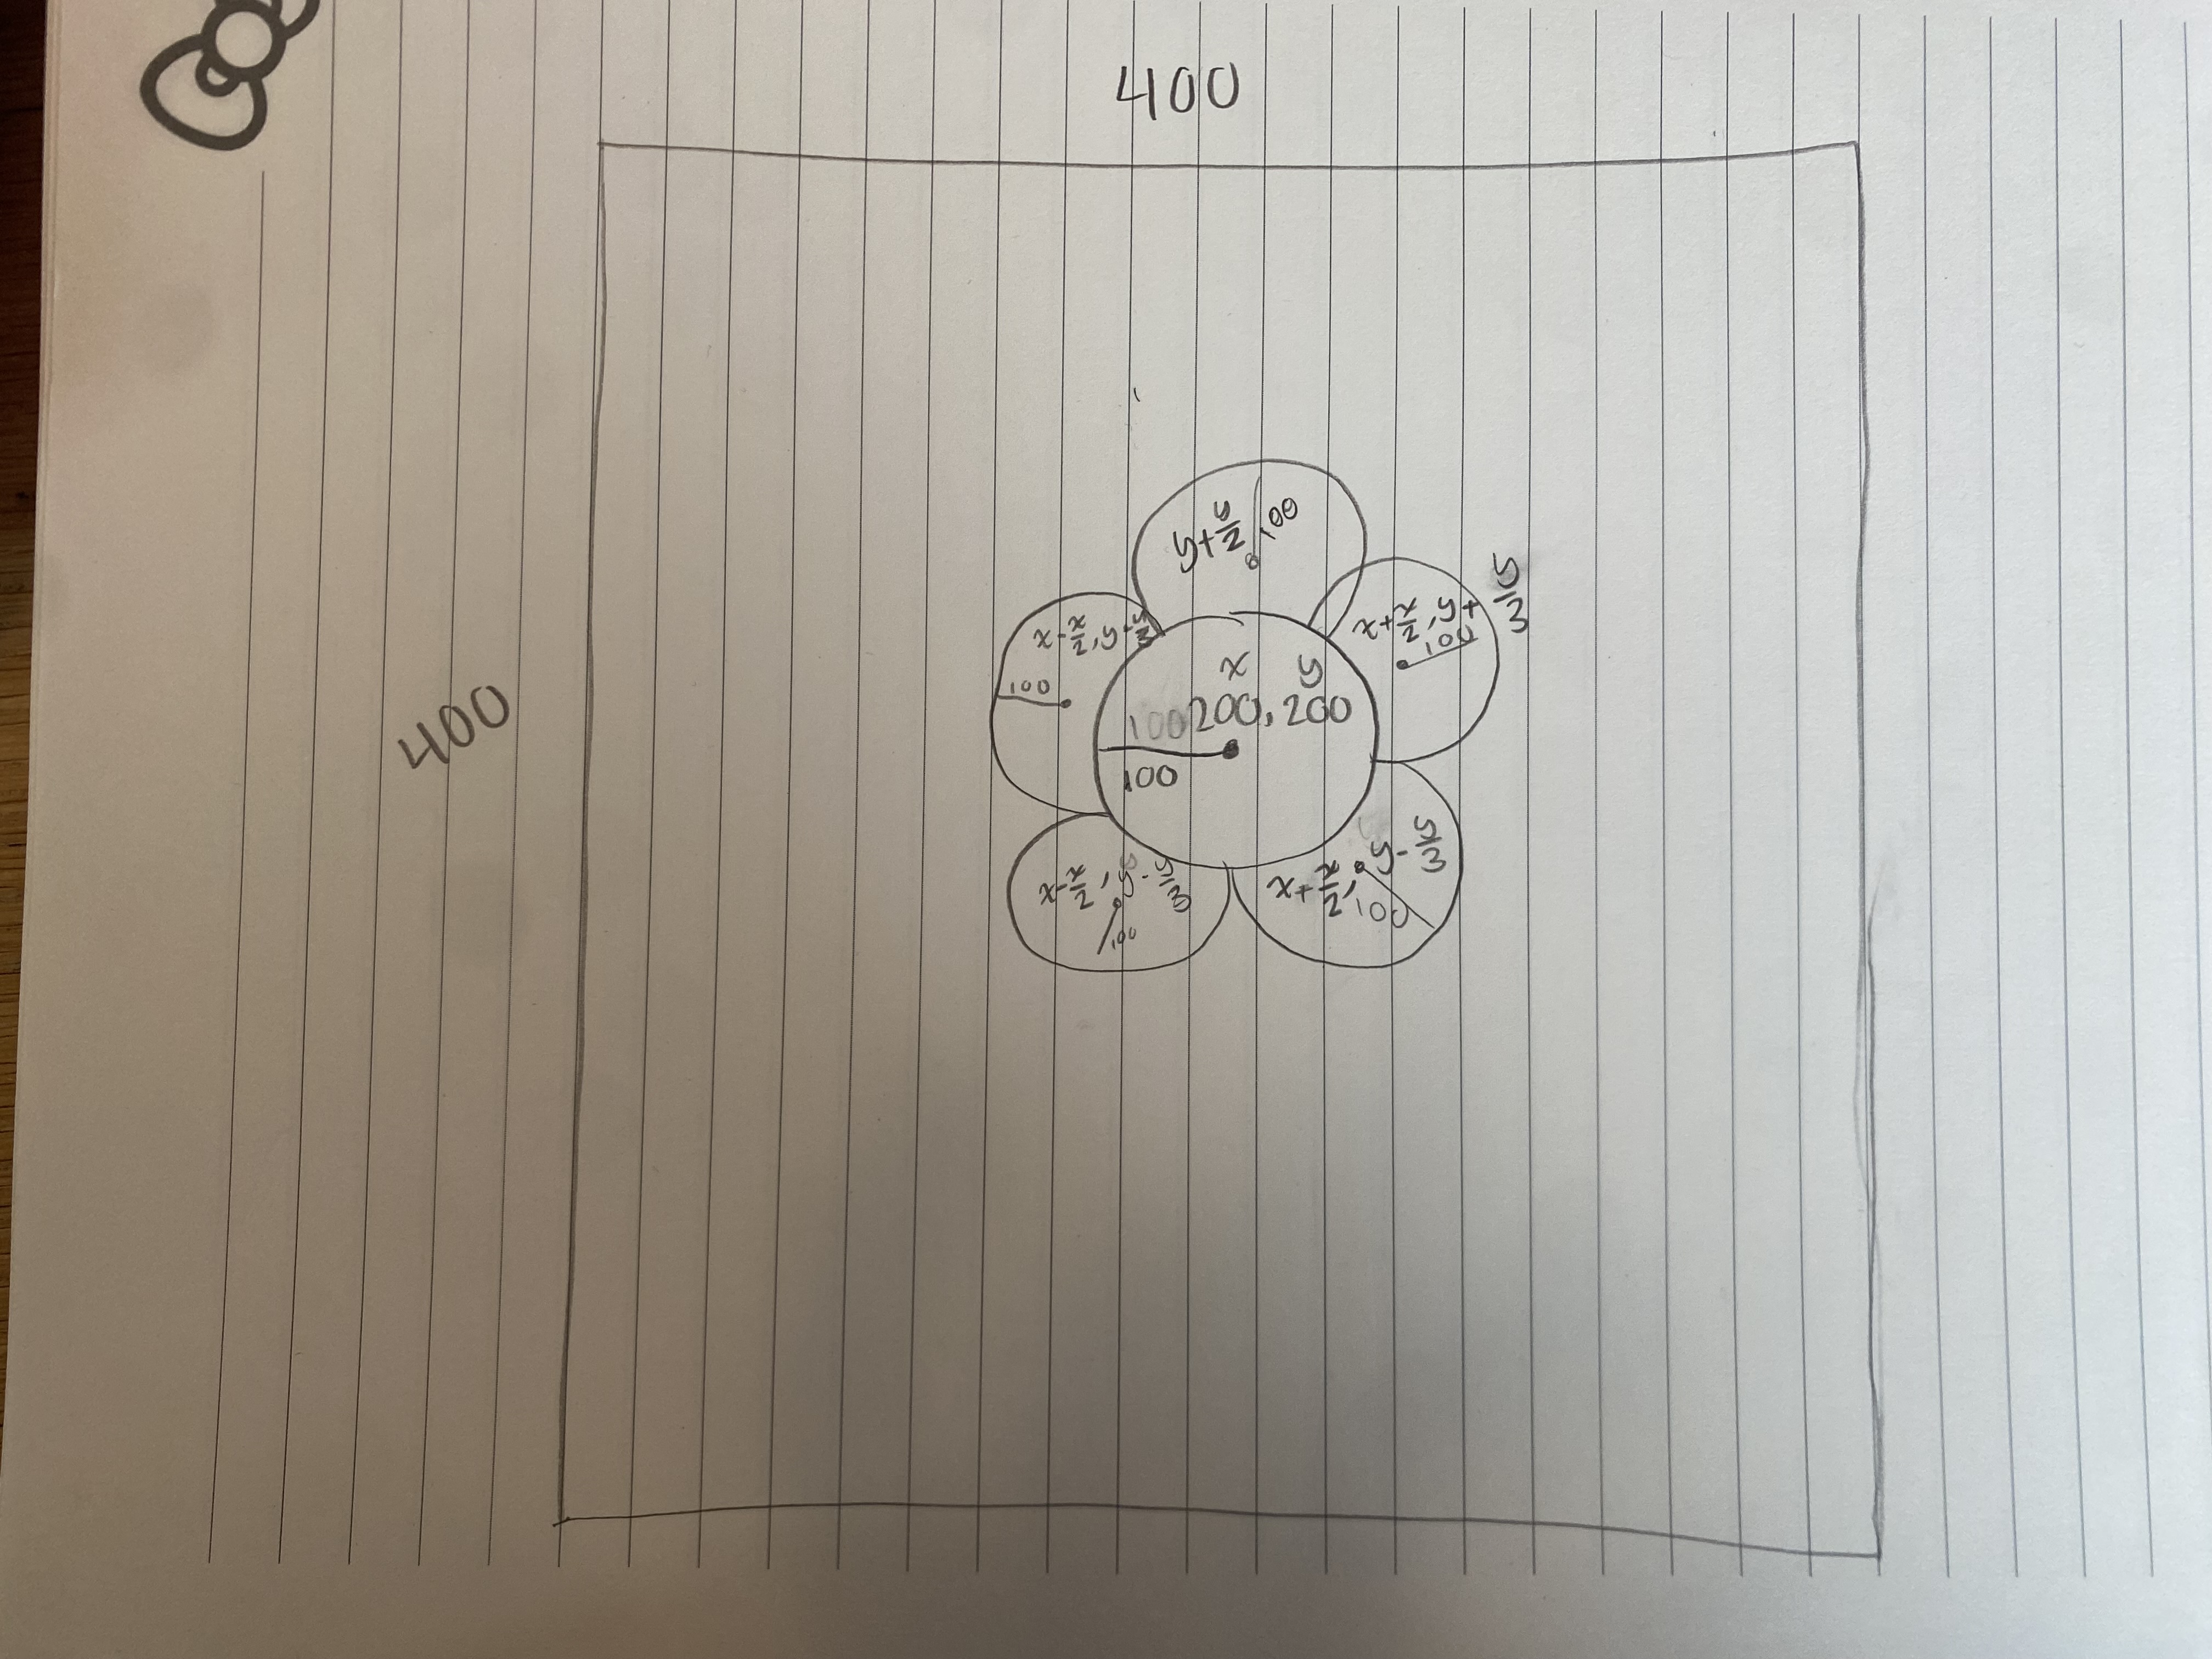 400
400
y+y/2
100
x-x/2, y-y/3
100
x+x/2, y+y/3
100
x y
100 200, 200
100
x-x/2, y-y/3
100
x+x/2, y-y/3
100